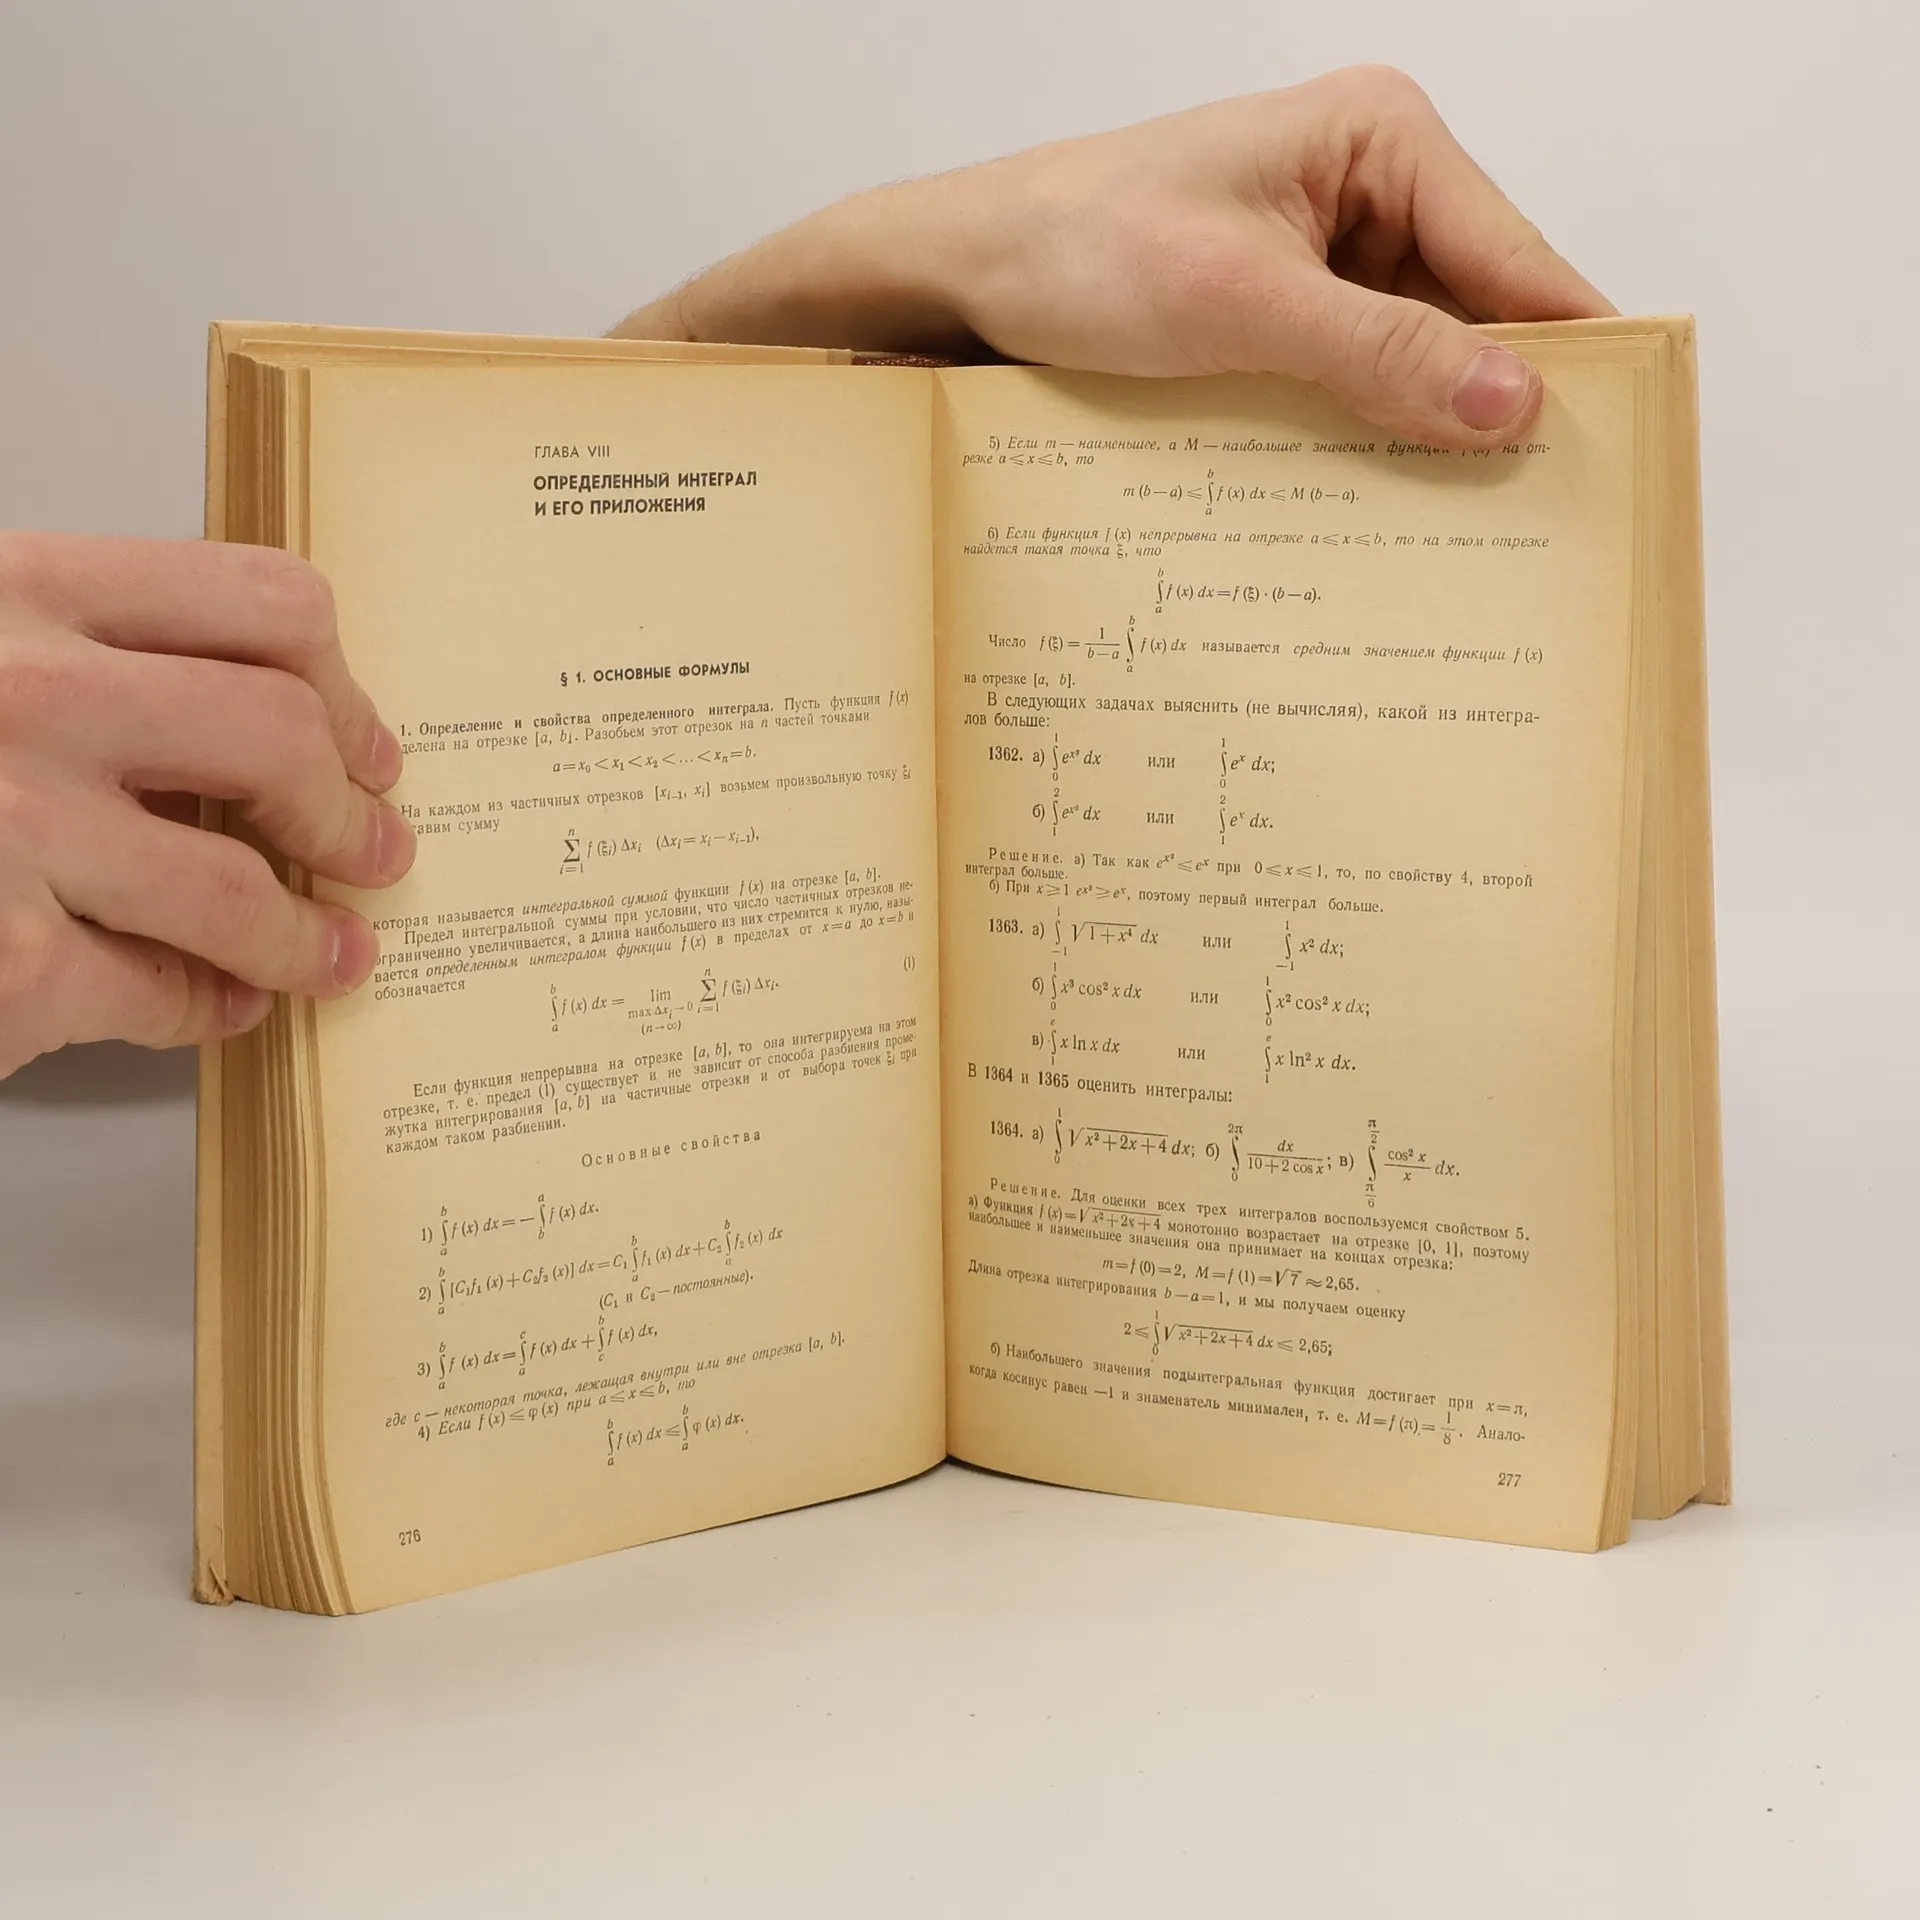 ГЛАВА VIII
ОПРЕДЕЛЕННЫЙ ИНТЕГРАЛ
И ЕГО ПРИЛОЖЕНИЯ
§ 1. ОСНОВНЫЕ ФОРМУЛЫ
1. Определение и свойства определенного интеграла. Пусть функция f (x)
делена на отрезке [a, b]. Разобьем этот отрезок на n частей точками
a=x₀<x₁<x₂<...<xₙ=b.
На каждом из частичных отрезков [xᵢ₋₁, xᵢ] возьмем произвольную точку ξᵢ
тавим сумму
∑ᵢ₌₁ⁿ f (ξᵢ) Δxᵢ (Δxᵢ=xᵢ—xᵢ₋₁),
которая называется интегральной суммой функции f (x) на отрезке [a, b].
Предел интегральной суммы при условии, что число частичных отрезков не-
ограниченно увеличивается, а длина наибольшего из них стремится к нулю, назы-
вается определенным интегралом функции f (x) в пределах от x=a до x=b и
обозначается
∫ₐᵇ f (x) dx = lim ∑ᵢ₌₁ⁿ f (ξᵢ) Δxᵢ. (1)
max Δxᵢ→0
(n→∞)
Если функция непрерывна на отрезке [a, b], то она интегрируема на этом
отрезке, т. е. предел (1) существует и не зависит от способа разбиения проме-
жутка интегрирования [a, b] на частичные отрезки и от выбора точек ξᵢ при
каждом таком разбиении.
Основные свойства
1) ∫ₐᵇ f (x) dx=—∫_b^a f (x) dx.
2) ∫ₐᵇ [C₁f₁ (x)+C₂f₂ (x)] dx=C₁∫ₐᵇ f₁ (x) dx+C₂∫ₐᵇ f₂ (x) dx
(C₁ и C₂—постоянные).
3) ∫ₐᵇ f (x) dx=∫_a^c f (x) dx+∫_c^b f (x) dx,
где c — некоторая точка, лежащая внутри или вне отрезка [a, b].
4) Если f (x)⩽φ (x) при a⩽x⩽b, то
∫ₐᵇ f (x) dx⩽∫ₐᵇ φ (x) dx.
276
5) Если m — наименьшее, а M — наибольшее значения на от-
резке a⩽x⩽b, то
m (b—a)⩽∫ₐᵇ f (x) dx⩽M (b—a).
6) Если функция f (x) непрерывна на отрезке a⩽x⩽b, то на этом отрезке
найдется такая точка ξ, что
∫ₐᵇ f (x) dx=f (ξ)·(b—a).
Число f (ξ)=1/(b—a) ∫ₐᵇ f (x) dx называется средним значением функции f (x)
на отрезке [a, b].
В следующих задачах выяснить (не вычисляя), какой из интегра-
лов больше:
1362. а) ∫₀¹ e^(x²) dx или ∫₀¹ eˣ dx;
б) ∫₁² e^(x²) dx или ∫₁² eˣ dx.
Решение. а) Так как e^(x²)⩽eˣ при 0⩽x⩽1, то, по свойству 4, второй
интеграл больше.
б) При x⩾1 e^(x²)⩾eˣ, поэтому первый интеграл больше.
1363. а) ∫₋₁¹ √(1+x⁴) dx или ∫₋₁¹ x² dx;
б) ∫₀¹ x³ cos² x dx или ∫₀¹ x² cos² x dx;
в) ∫₁ᵉ x ln x dx или ∫₁ᵉ x ln² x dx.
В 1364 и 1365 оценить интегралы:
1364. а) ∫₀¹ √(x²+2x+4) dx; б) ∫_0^(2π) dx/(10+2 cos x); в) ∫_(π/6)^(π/2) (cos² x)/x dx.
Решение. Для оценки всех трех интегралов воспользуемся свойством 5.
а) Функция f (x)=√(x²+2x+4) монотонно возрастает на отрезке [0, 1], поэтому
наибольшее и наименьшее значения она принимает на концах отрезка:
m=f (0)=2, M=f (1)=√7≈2,65.
Длина отрезка интегрирования b—a=1, и мы получаем оценку
2⩽∫₀¹ √(x²+2x+4) dx⩽2,65;
б) Наибольшего значения подынтегральная функция достигает при x=π,
когда косинус равен —1 и знаменатель минимален, т. е. M=f (π)=1/8. Анало-
277